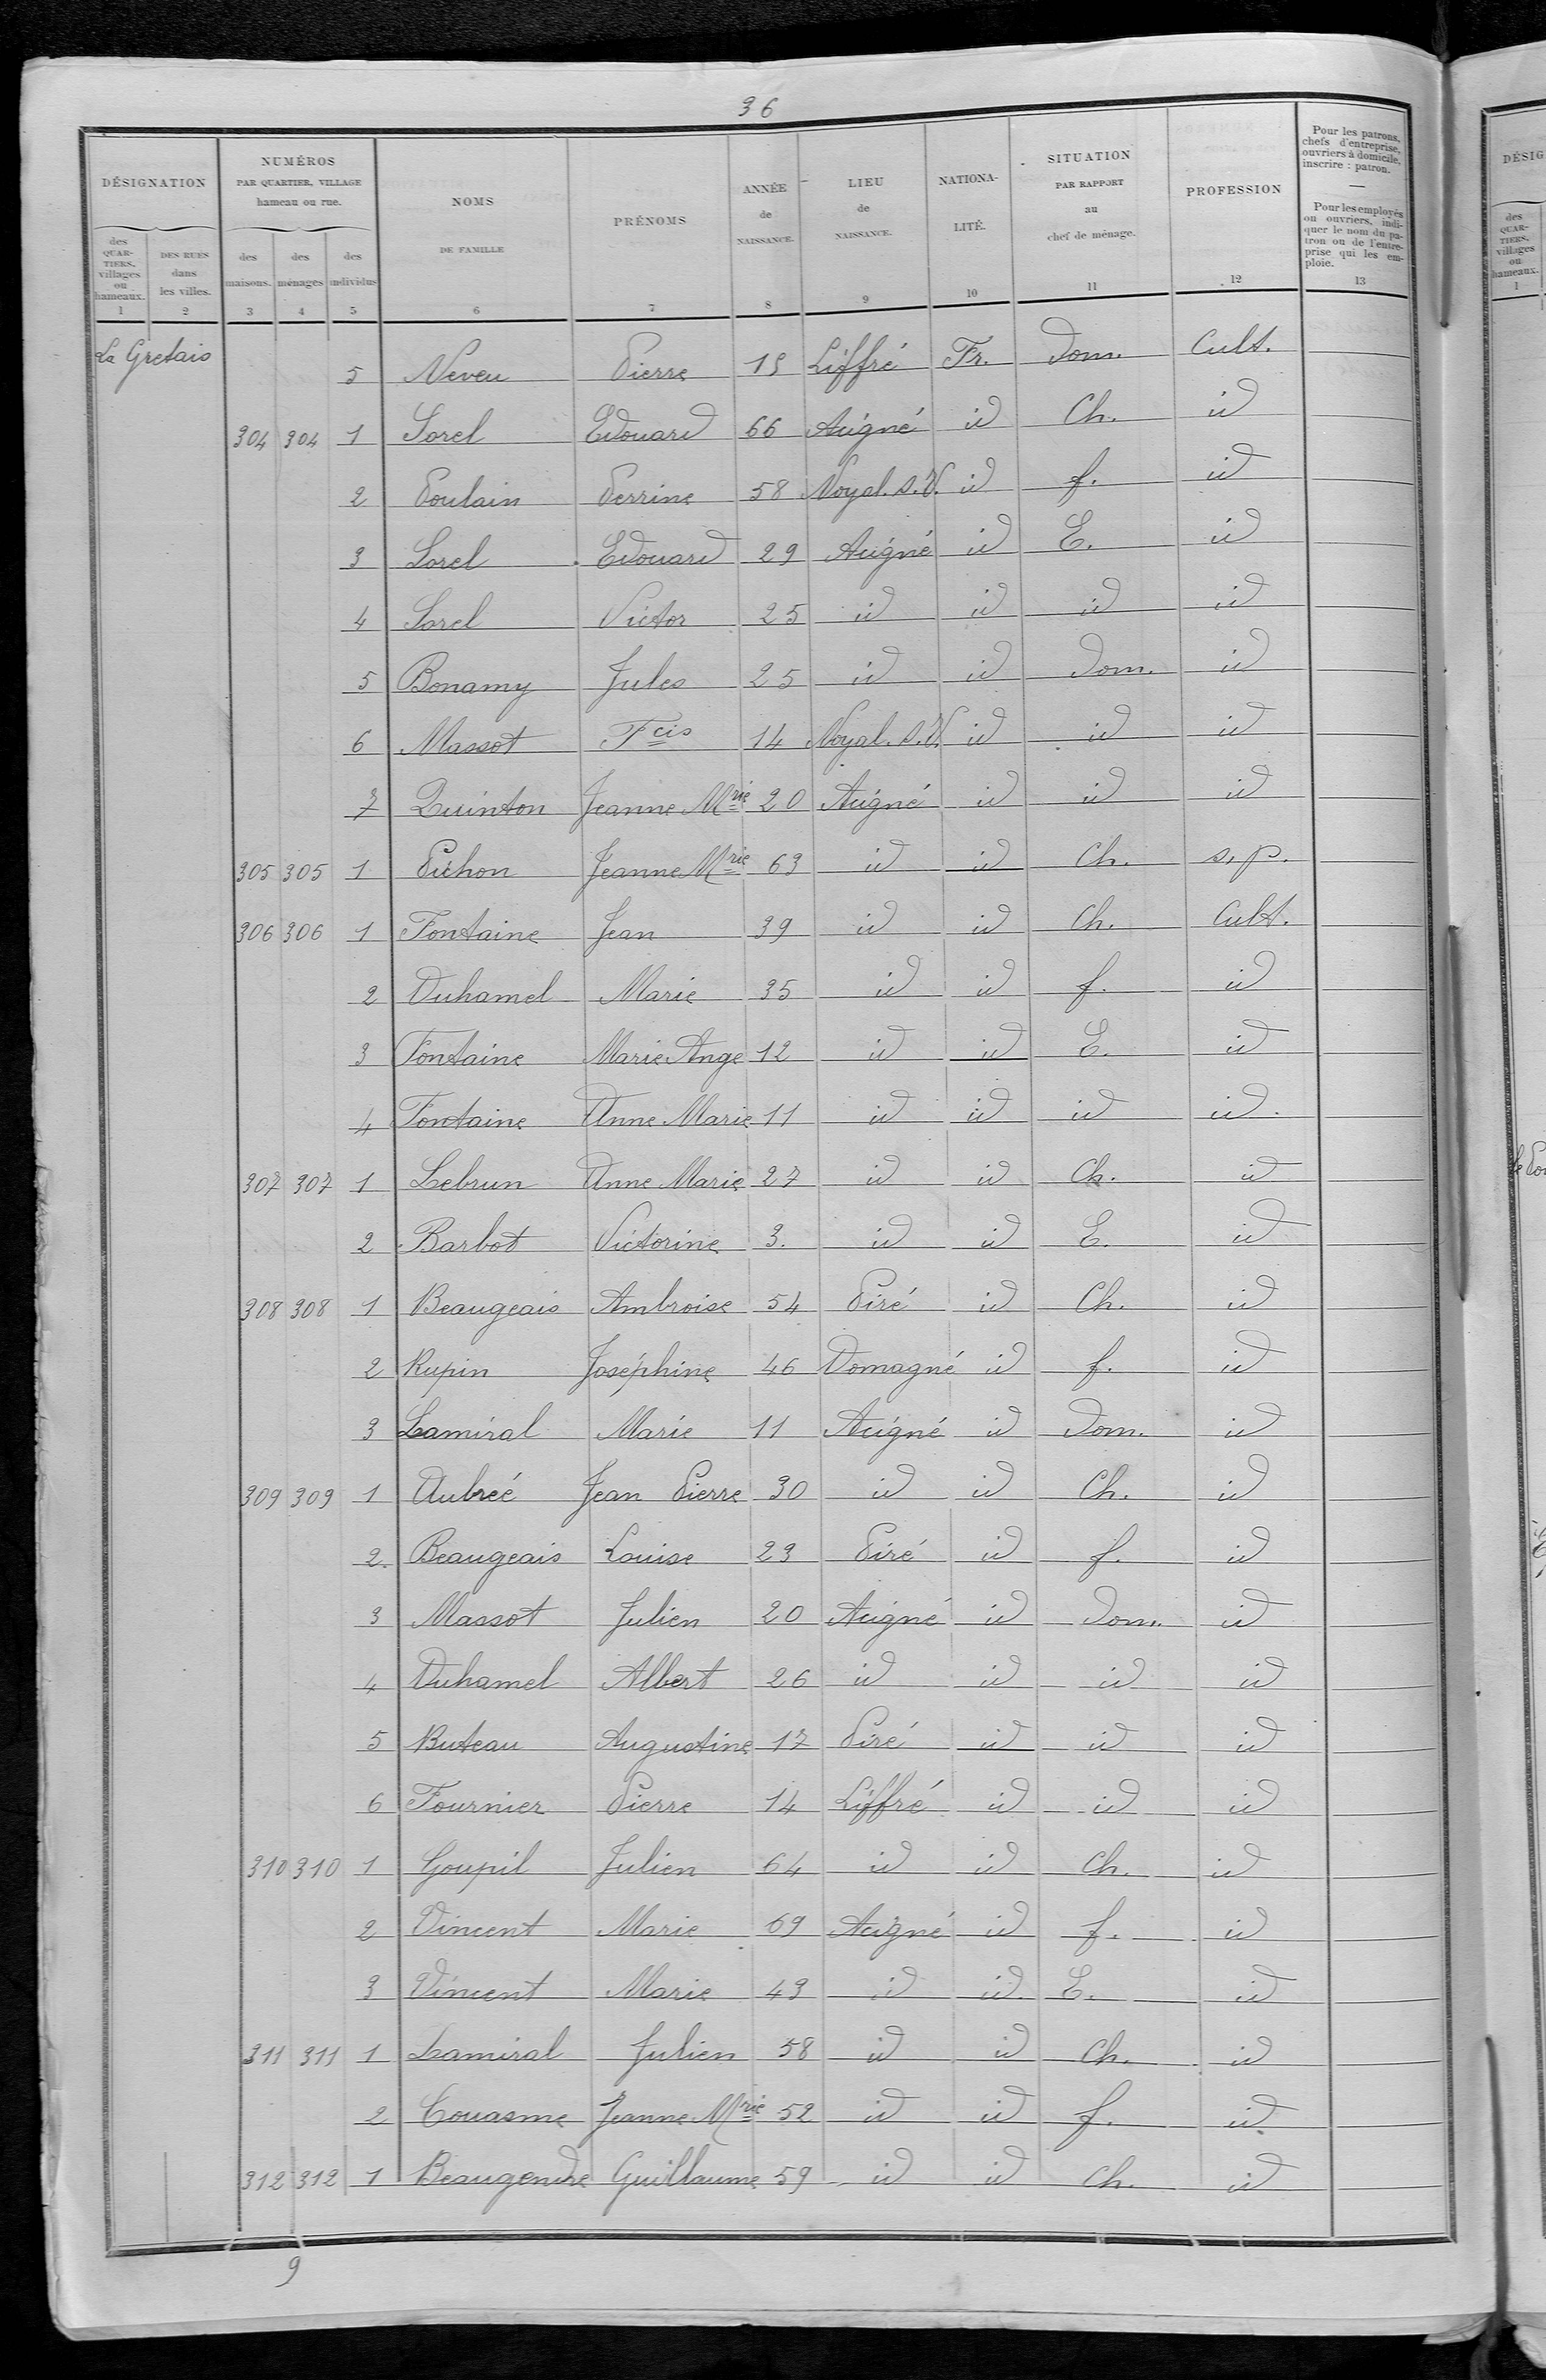 36
DÉSIGNATION NUMÉROS PAR QUARTIER, VILLAGE hameau ou rue. NOMS DE FAMILLE PRÉNOMS ANNÉE de NAISSANCE. LIEU de NAISSANCE. NATIONA-LITÉ. SITUATION PAR RAPPORT au chef de ménage. PROFESSION Pour les patrons, chefs d'entreprise, ouvriers à domicile, inscrire : patron. — Pour les employés ou ouvriers, indiquer le nom du patron ou de l'entreprise qui les emploie.
des QUARTIERS, villages ou hameaux. DES RUES dans les villes. des maisons. des ménages des individus
1 2 3 4 5 6 7 8 9 10 11 12 13
La Gretais 5 Neveu Pierre 15 Liffré Fr. dom. Cult.
304 304 1 Sorel Edouard 66 Acigné id Ch. id
2 Poulain Perrine 58 Noyal.s.V. id f. id
3 Sorel Edouard 29 Acigné id E. id
4 Sorel Victor 25 id id id id
5 Bonamy Jules 25 id id dom. id
6 Massot Fcis 14 Noyal.s.V. id id id
7 Quinton Jeanne Mrie 20 Acigné id id id
305 305 1 Pichon Jeanne Mrie 63 id id Ch. s.p.
306 306 1 Fontaine Jean 39 id id Ch. Cult.
2 Duhamel Marie 35 id id f. id
3 Fontaine Marie Ange 12 id id E. id
4 Fontaine Anne Marie 11 id id id id.
307 307 1 Lebrun Anne Marie 27 id id Ch. id
2 Barbot Victorine 3. id id E. id
308 308 1 Beaugeais Ambroise 54 Piré id Ch. id
2 Rupin Joséphine 46 Domagné id f. id
3 Lamiral Marie 11 Acigné id dom. id
309 309 1 Aubreé Jean Pierre 30 id id Ch. id
2. Beaugeais Louise 23 Piré id f. id
3 Massot Julien 20 Acigné id dom. id
4 Duhamel Albert 26 id id id id
5 Buteau Augustine 17 Piré id id id
6 Fournier Pierre 14 Liffré id id id
310 310 1 Goupil Julien 64 id id Ch. id
2 Vincent Marie 69 Acigné id f. id
3 Vincent Marie 43 id id E. id
311 311 1 Lamiral Julien 58 id id Ch. id
2 Couasme Jeanne Mrie 52 id id f. id
312 312 1 Beaugendre Guillaume 59 id id Ch. id
9
DÉSIG
des QUARTIERS, villages ou hameaux.
1